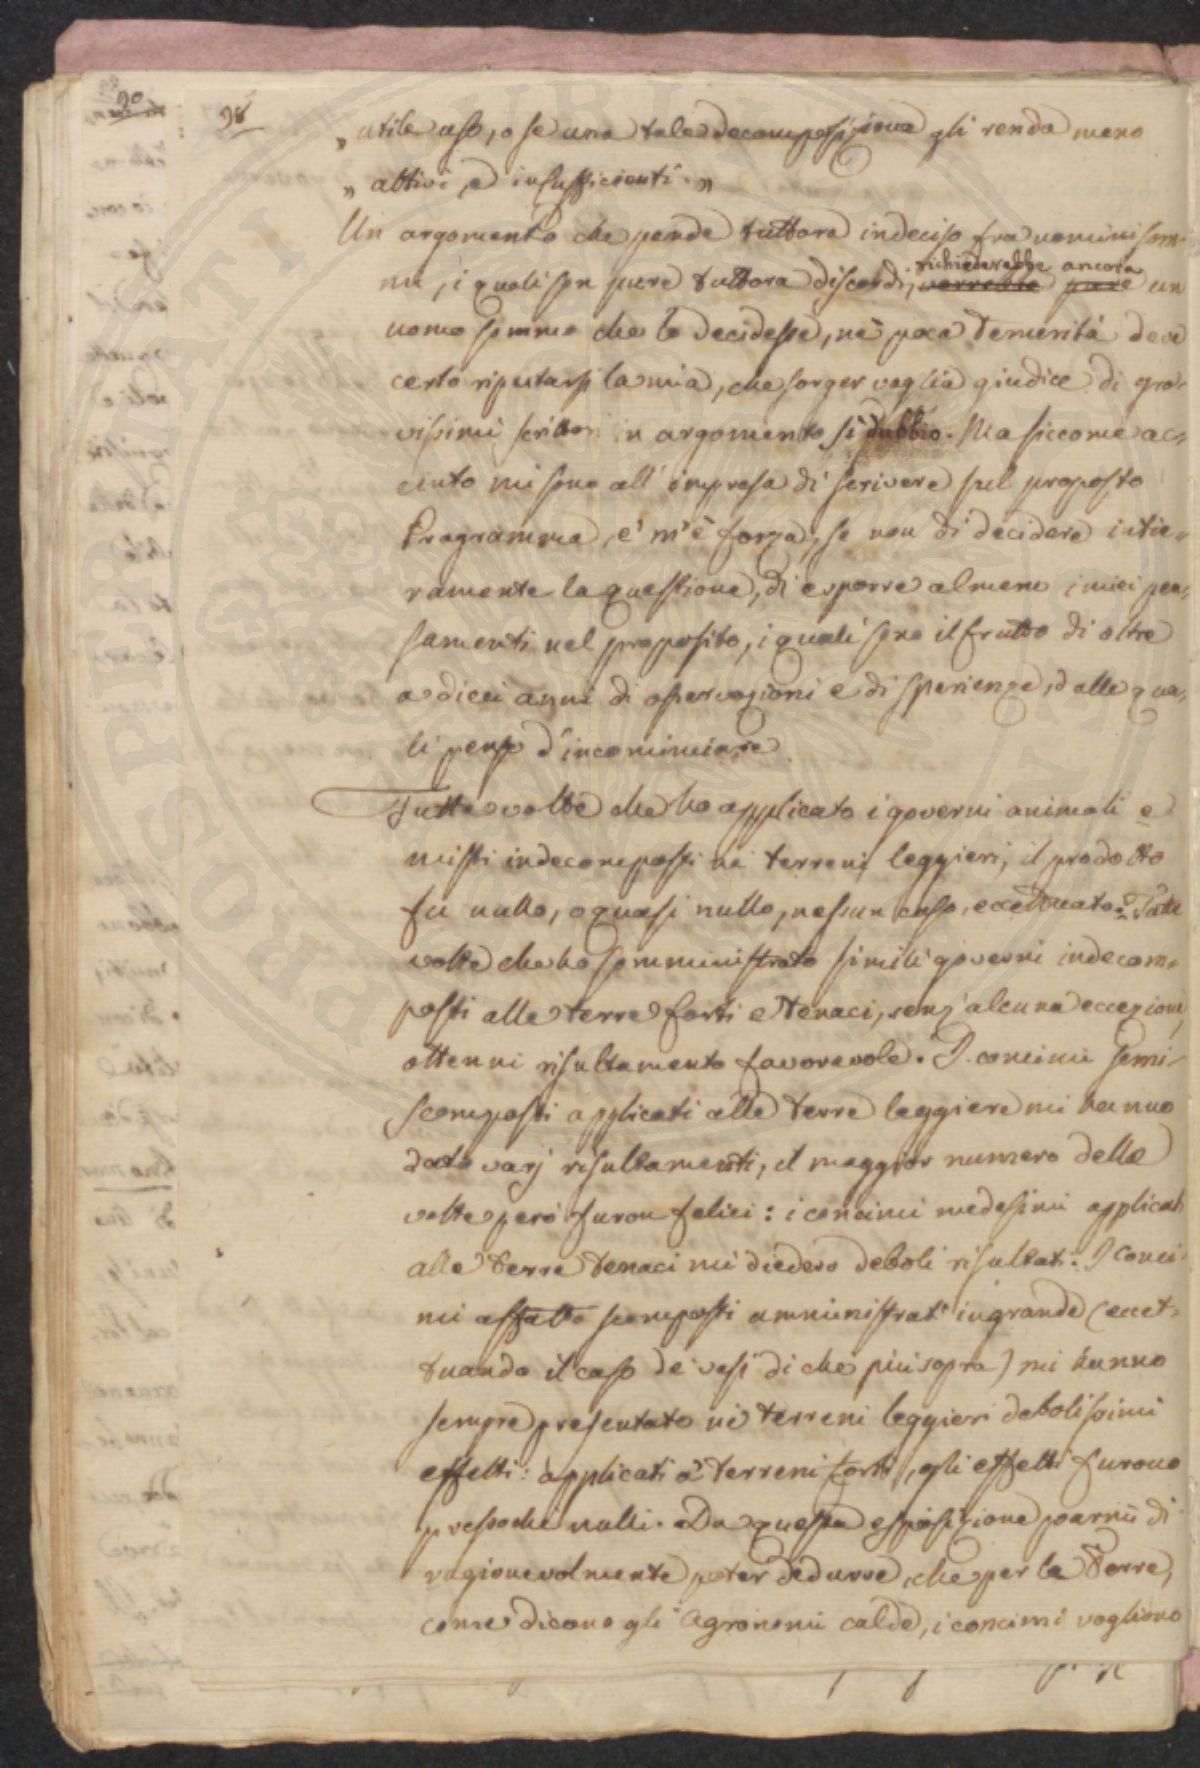 98
„ utile uso, o se una tale decomposizione gli renda meno
„ attivi, ed insufficienti. „
Un argomento che pende tuttora indeciso fra uomini som-
mi, i quali son pure tuttora discordi, richiederebbe ancora un
uomo sommo che lo decidesse, nè poca temerità deve
certo riputarsi la mia, che sorger voglia giudice di gra-
vissimi scrittori in argomento sì dubbio. Ma siccome ac-
cinto mi sono all' impresa di scrivere sul proposto
Programma, e' m'è forza, se non di decidere intie-
ramente la questione, di esporre almeno i miei pen-
samenti nel proposito, i quali sono il frutto di oltre
a dieci anni di osservazioni e di sperienze, dalle qua-
li penso d'incominciare.
Tutte volte che ho applicato i governi animali e
misti indecomposti ne' terreni leggieri, il prodotto
fu nullo, o quasi nullo, nessun caso eccettuato: Tutte
volte che ho somministrato simili governi indecom-
posti alle terre forti e tenaci, senz' alcuna eccezione,
ottenni risultamento favorevole. I concimi semi-
scomposti applicati alle terre leggiere mi hanno
dato varj risultamenti, il maggior numero delle
volte però furon felici: i concimi medesimi applicati
alle terre tenaci mi diedero deboli risultati. I conci-
mi affatto scomposti amministrati in grande (eccet-
tuando il caso de' vasi di che più sopra) mi hanno
sempre presentato ne' terreni leggieri debolissimi
effetti: applicati a' terreni forti, gli effetti furono
pressochè nulli. Da questa esposizione parmi di
ragionevolmente poter dedurre, che per le Terre,
come dicono gli Agronomi calde, i concimi vogliono